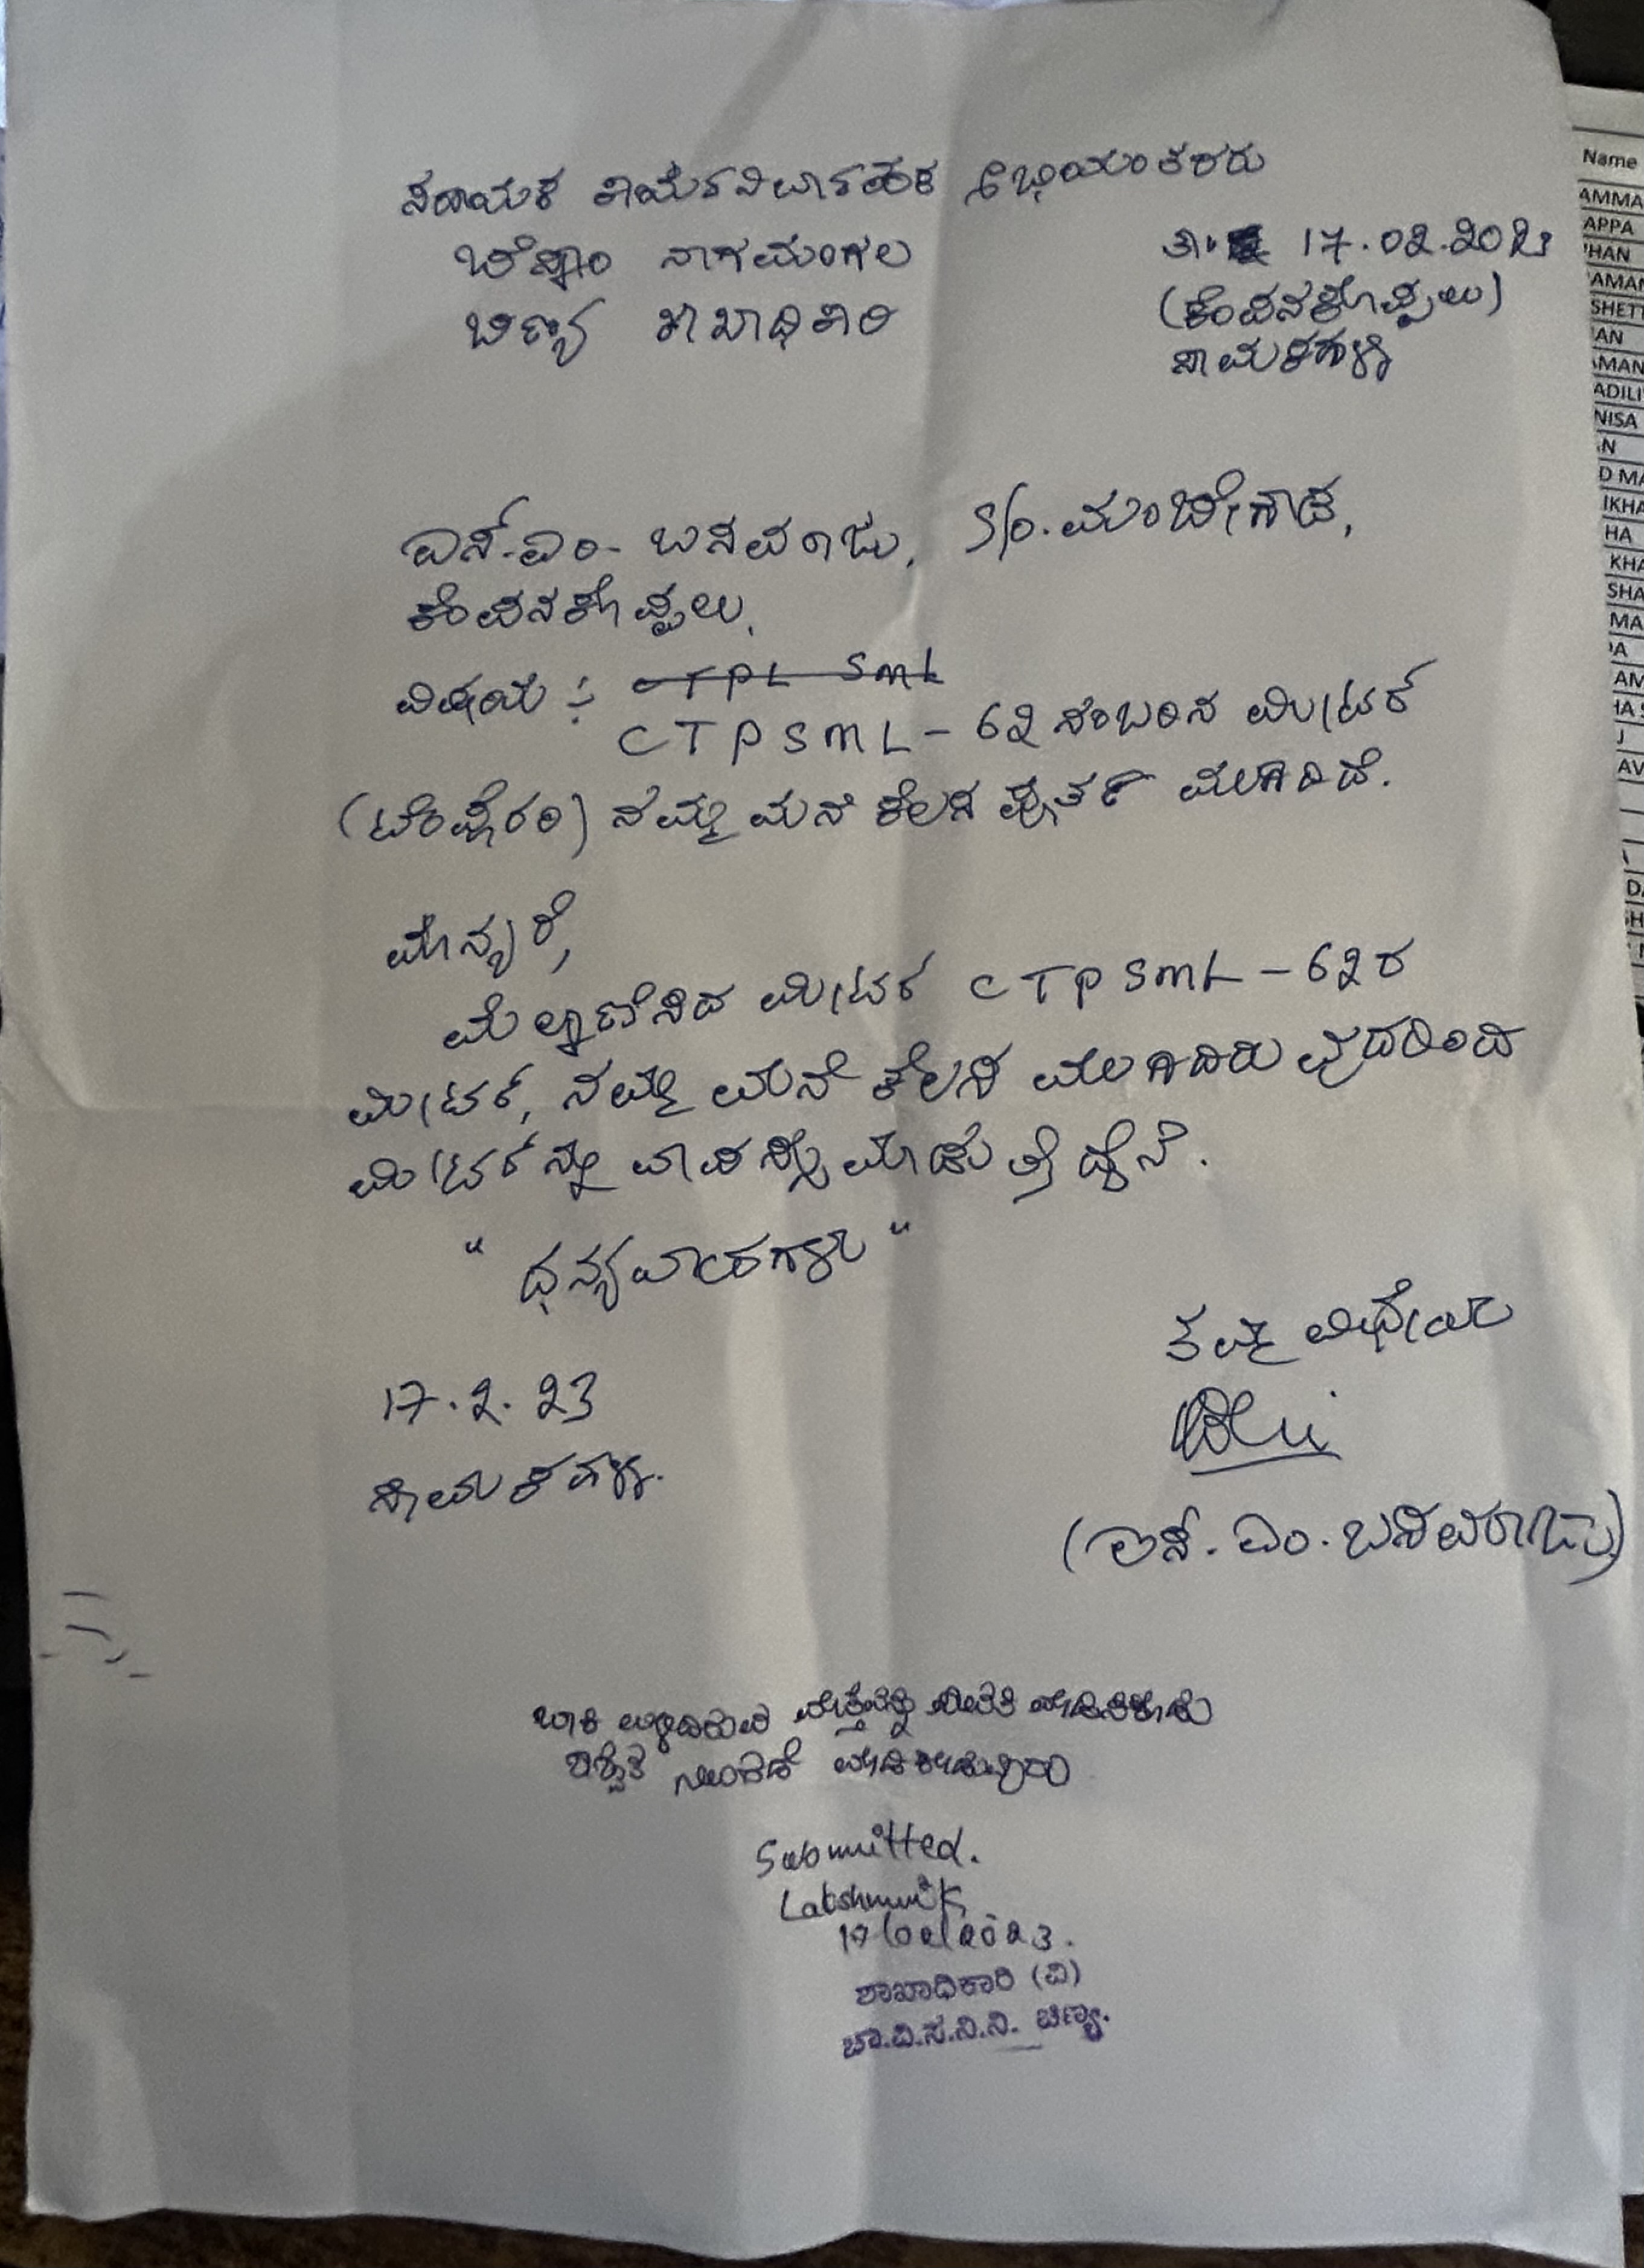 ಸಹಾಯಕ ಕಾರ್ಯನಿರ್ವಾಹಕ ಅಭಿಯಂತರರು
ಚೆಸ್ಕಾಂ ನಾಗಮಂಗಲ
ತಾ. 17.02.2023
ಚಿಣ್ಯ ಶಾಖಾಧಿಕಾರಿ
(ಕೆಂಪನಕೊಪ್ಪಲು)
ಎಸ್.ಎಂ. ಬಸವರಾಜು, S/o. ಮಂಚೇಗೌಡ,
ಕೆಂಪನಕೊಪ್ಪಲು.
ವಿಷಯ :- CTPL SML
CTPSML-62 ನಂಬರಿನ ಮೀಟರ್
(ಟೆಂಪ್ರೆರರಿ) ನಮ್ಮ ಮನೆ ಕೆಲಸ ಪೂರ್ತಿ ಮುಗಿದಿದೆ.
ಮಾನ್ಯರೆ,
ಮೆಲ್ಕಾಣಿಸಿದ ಮೀಟರ್ CTPSML-62ರ
ಮೀಟರ್, ನಮ್ಮ ಮನೆ ಕೆಲಸ ಮುಗಿದಿರುವುದರಿಂದ
ಮೀಟರ್‌ನ್ನು ವಾಪಸ್ಸು ಮಾಡುತ್ತಿದ್ದೆನೆ.
" ಧನ್ಯವಾದಗಳು "
ತಮ್ಮ ವಿಧೇಯ
17.2.23
(ಎಸ್. ಎಂ. ಬಸವರಾಜು)
ಬಾಕಿ ಉಳಿದಿರುವ ಮೊತ್ತವನ್ನು
Submitted.
Lakshmi K
17/02/2023.
ಶಾಖಾಧಿಕಾರಿ (ವಿ)
ಚಾ.ವಿ.ಸ.ನಿ.ನಿ. ಚಿಣ್ಯ.
Name
AMMA
APPA
HAN
AMAN
SHETT
AN
AMAN
ADILI
NISA
N
D MA
IKHA
HA
KHA
SHA
MA